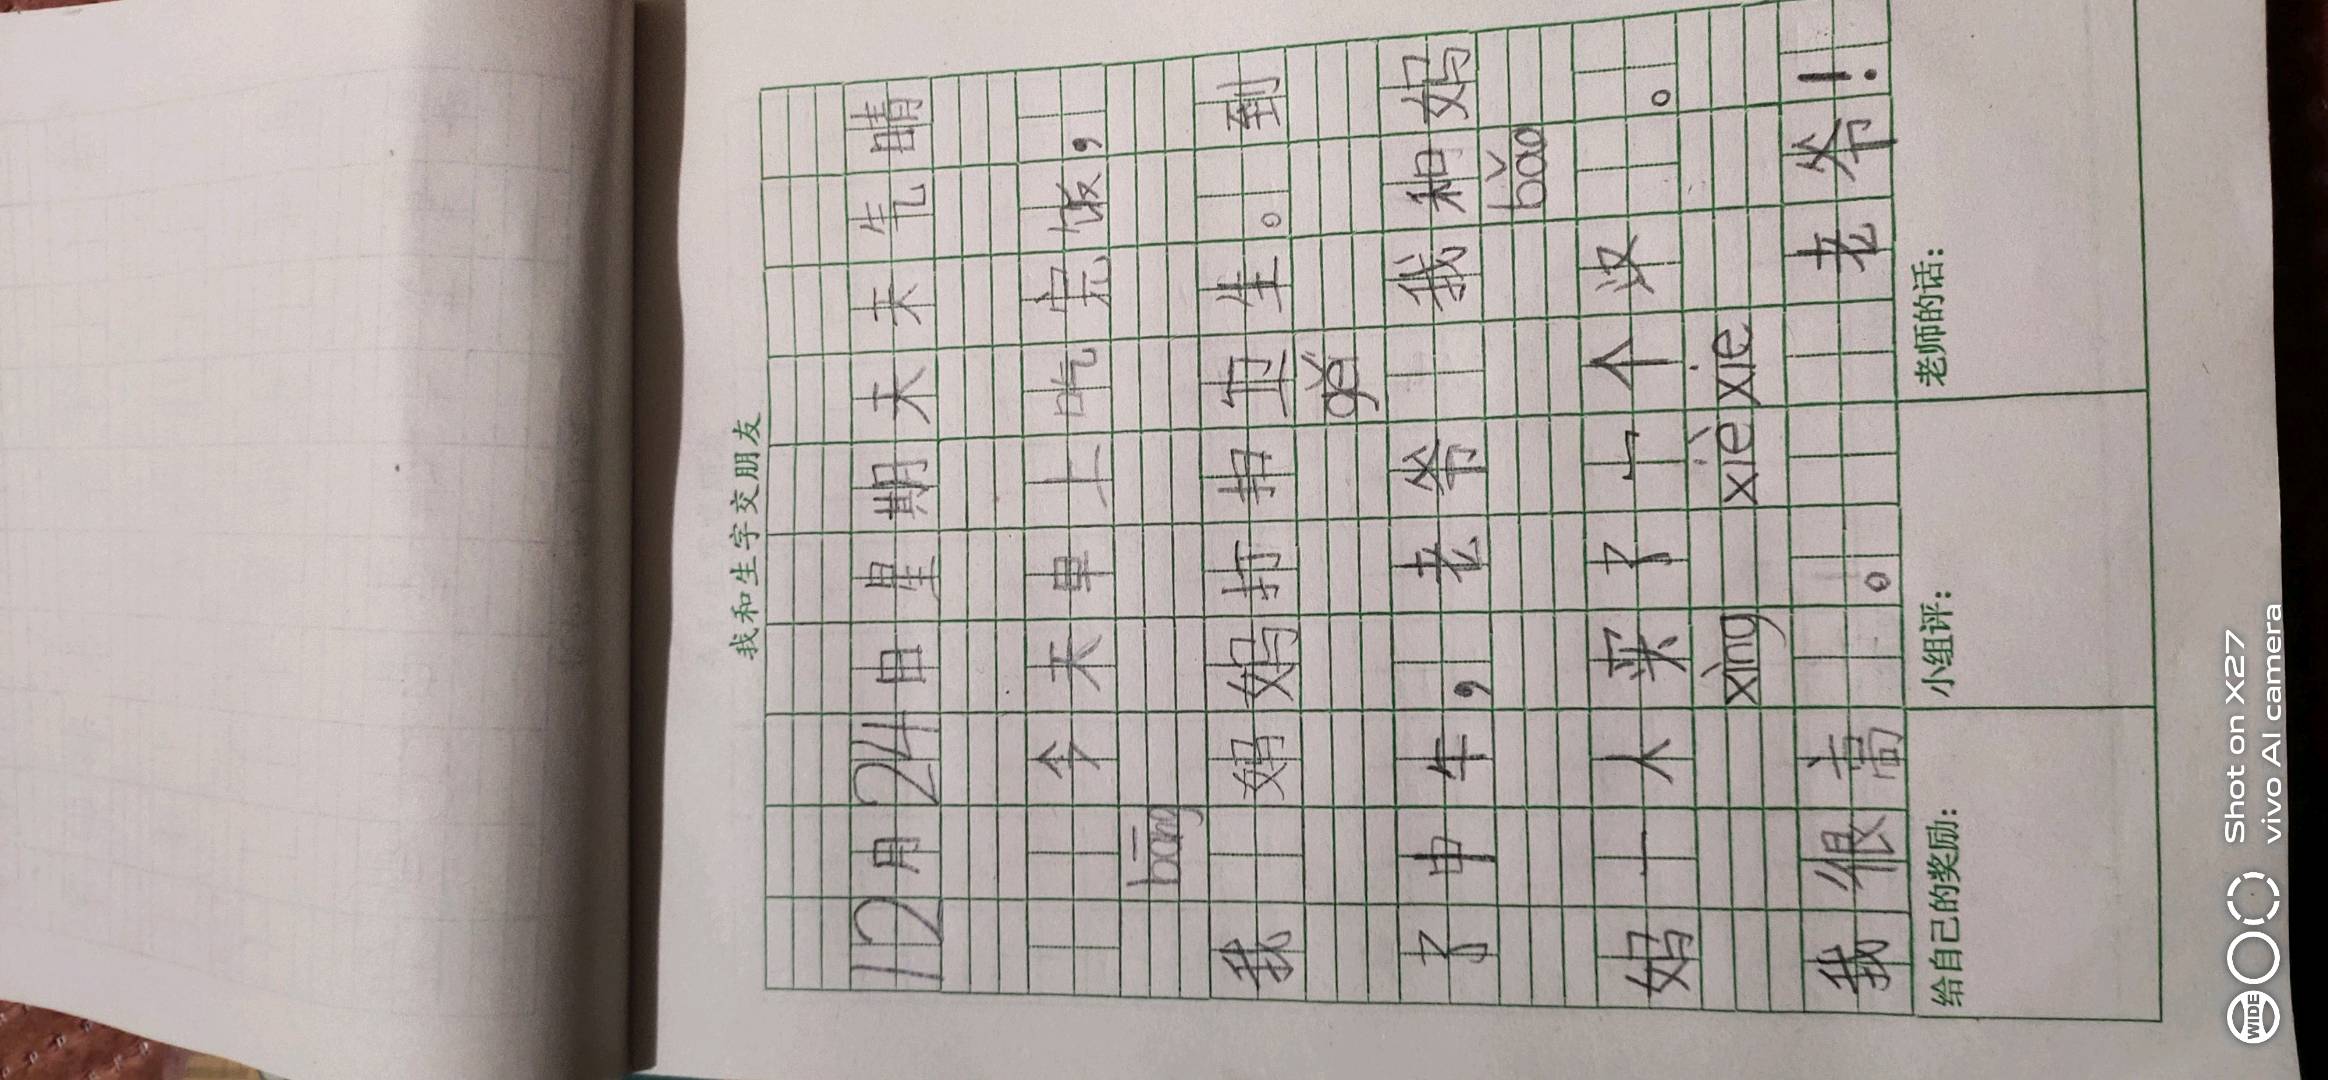 我和生字交朋友
12月24日星期天天气晴
今天早上吃完饭，
bāng
我 妈妈打扫卫生。到
gěi
了中午，老爷 我和妈
bǎo
妈一人买了一个汉 。
xìng xièxie
我很高 。 老爷！
给自己的奖励：
小组评：
老师的话：
Shot on X27
vivo AI camera
WIDE